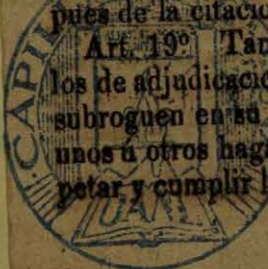 pues de la citacio
Art. 19º Tan
los de adjudicacio
subroguen en su
unos ú otros hag
petar y cumplir l
CAPIL
UANL